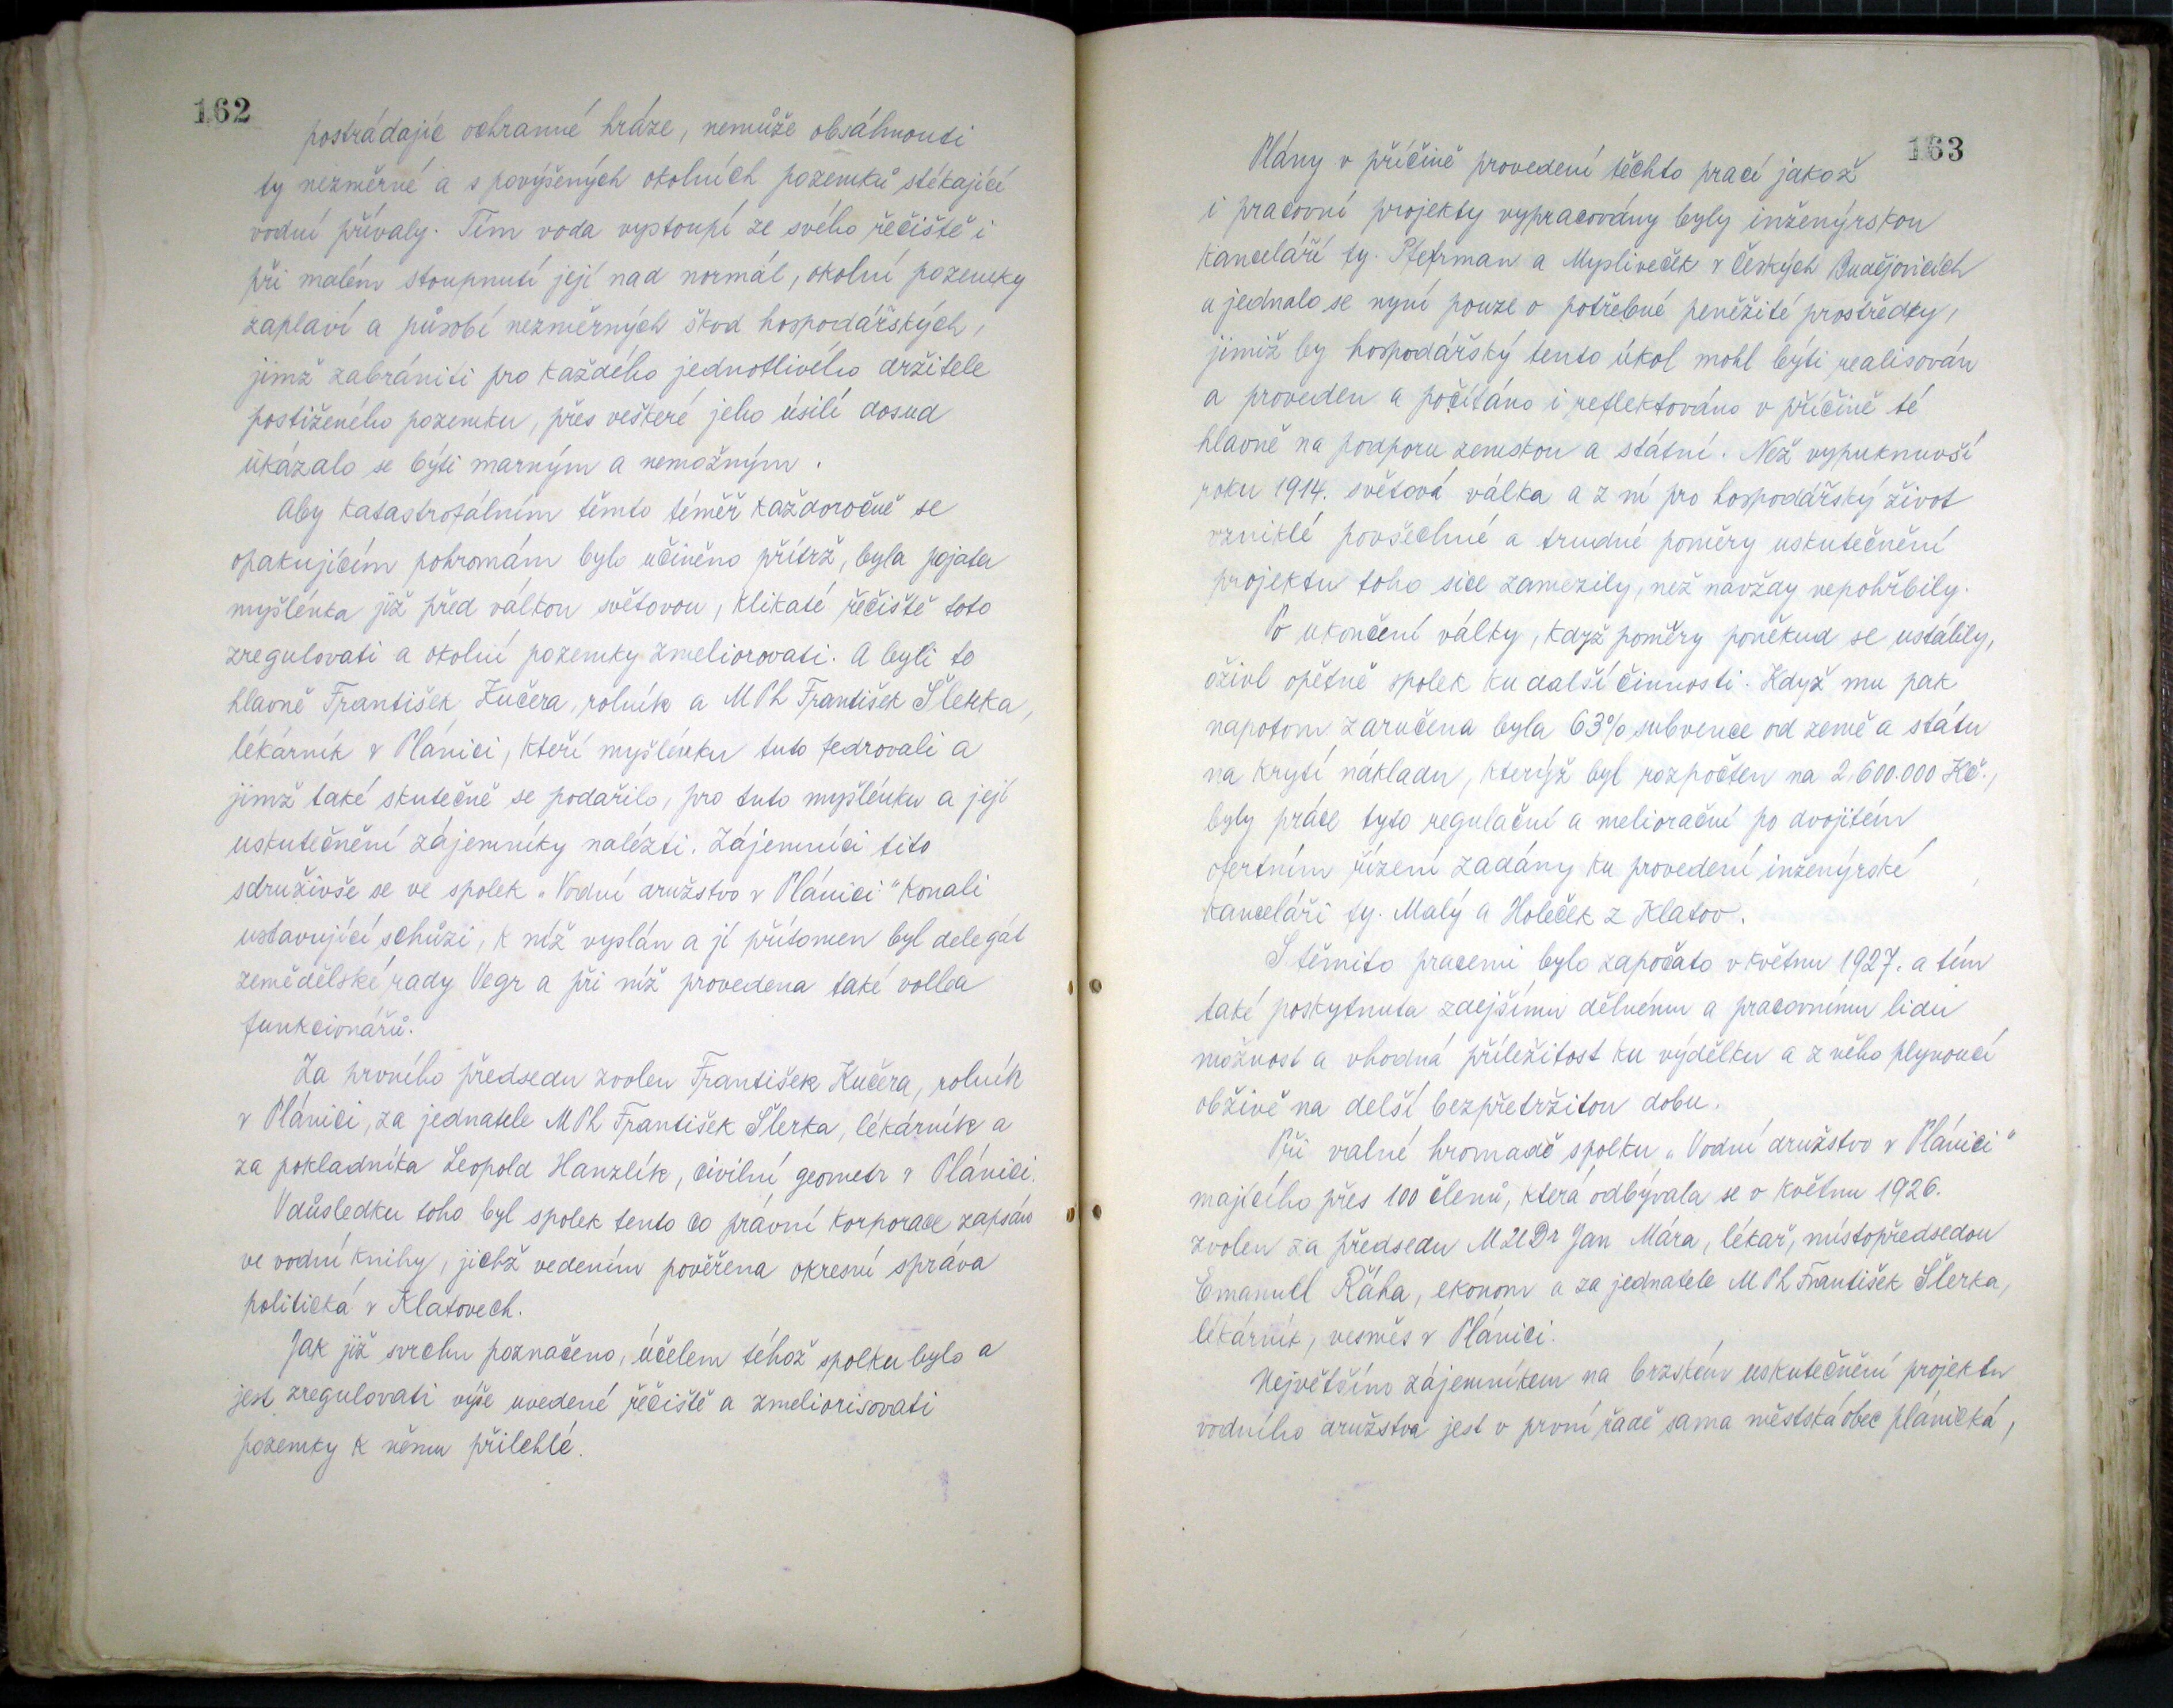 162
postrádajíc ochranné hráze, nemůže obsáhnouti
ty nezměrné a s povýšených okolních pozemků stékající
vodní přívaly. Tím voda vystoupí ze svého řečiště i
při malém stoupnutí její nad normál, okolní pozemky
zaplaví a působí nezměrných škod hospodářských,
jimž zabrániti pro každého jednotlivého držitele
postiženého pozemku, přes veškeré jeho úsilí dosud
ukázalo se býti marným a nemožným.
Aby katastrofálním těmto téměř každoročně se
opakujícím pohromám bylo učiněno přítrž, byla pojata
myšlénka již před válkou světovou, klikaté řečiště toto
zregulovati a okolní pozemky zmeliorovati. A byli to
hlavně František Kučera, rolník a MPh František Šlerka,
lékárník v Plánici, kteří myšlénku tuto fedrovali a
jimž také skutečně se podařilo, pro tuto myšlénku a její
uskutečnění zájemníky nalézti. Zájemníci tito
sdruživše se ve spolek „Vodní družstvo v Plánici" konali
ustavující schůzi, k níž vyslán a jí přítomen byl delegát
zemědělské rady Vegr a při níž provedena také volba
funkcionářů.
Za prvního předsedu zvolen František Kučera, rolník
v Plánici, za jednatele MPh František Šlerka, lékárník a
za pokladníka Leopold Hanzlík, civilní geometr v Plánici.
V důsledku toho byl spolek tento co právní korporace zapsán
ve vodní knihy, jichž vedením pověřena okresní správa
politická v Klatovech.
Jak již svrchu poznačeno, účelem téhož spolku bylo a
jest zregulovati výše uvedené řečiště a zmeliorisovati
pozemky k němu přilehlé.
163
Plány v příčině provedení těchto prací jakož
i pracovní projekty vypracovány byly inženýrskou
kanceláří fy. Pfefrman a Mysliveček v Českých Budějovicích
a jednalo se nyní pouze o potřebné peněžité prostředky,
jimiž by hospodářský tento úkol mohl býti realisován
a proveden a počítáno i reflektováno v příčině té
hlavně na podporu zemskou a státní. Než vypuknuvší
roku 1914. světová válka a z ní pro hospodářský život
vzniklé povšechné a trudné poměry uskutečnění
projektu toho sice zamezily, než navždy nepohřbily.
Po ukončení války, když poměry poněkud se ustálily,
oživl opětně spolek ku další činnosti. Když mu pak
napotom zaručena byla 63% subvence od země a státu
na krytí nákladu, kterýž byl rozpočten na 2,600.000 Kč.,
byly práce tyto regulační a meliorační po dvojitém
ofertním řízení zadány ku provedení inženýrské
kanceláři fy. Malý a Holeček z Klatov.
S těmito pracemi bylo započato v květnu 1927. a tím
také poskytnuta zdejšímu dělnému a pracovnímu lidu
možnost a vhodná příležitost ku výdělku a z něho plynoucí
obživě na delší bezpřetržitou dobu.
Při valné hromadě spolku „Vodní družstvo v Plánici"
majícího přes 100 členů, která odbývala se v květnu 1926.
zvolen za předsedu MUDr Jan Mára, lékař, místopředsedou
Emanuel Řáha, ekonom a za jednatele MPh František Šlerka,
lékárník, vesměs v Plánici.
Největším zájemníkem na brzském uskutečnění projektu
vodního družstva jest v první řadě sama městská obec plánická,